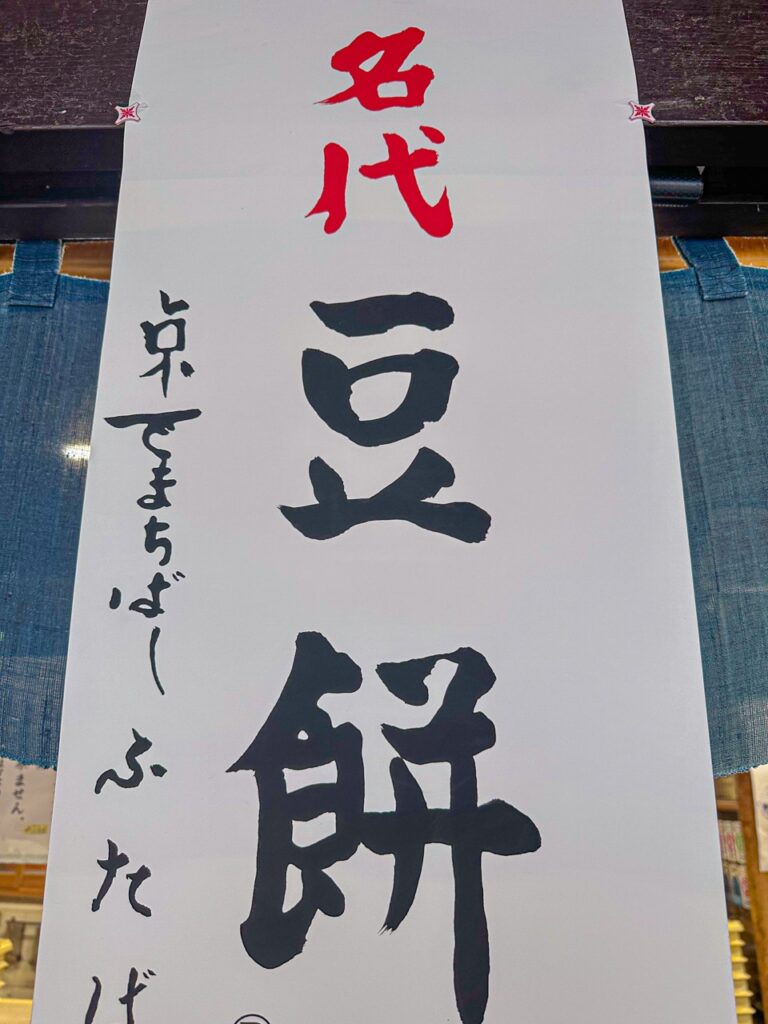 名代
豆餅
京でまちばし
ふたば
ません。